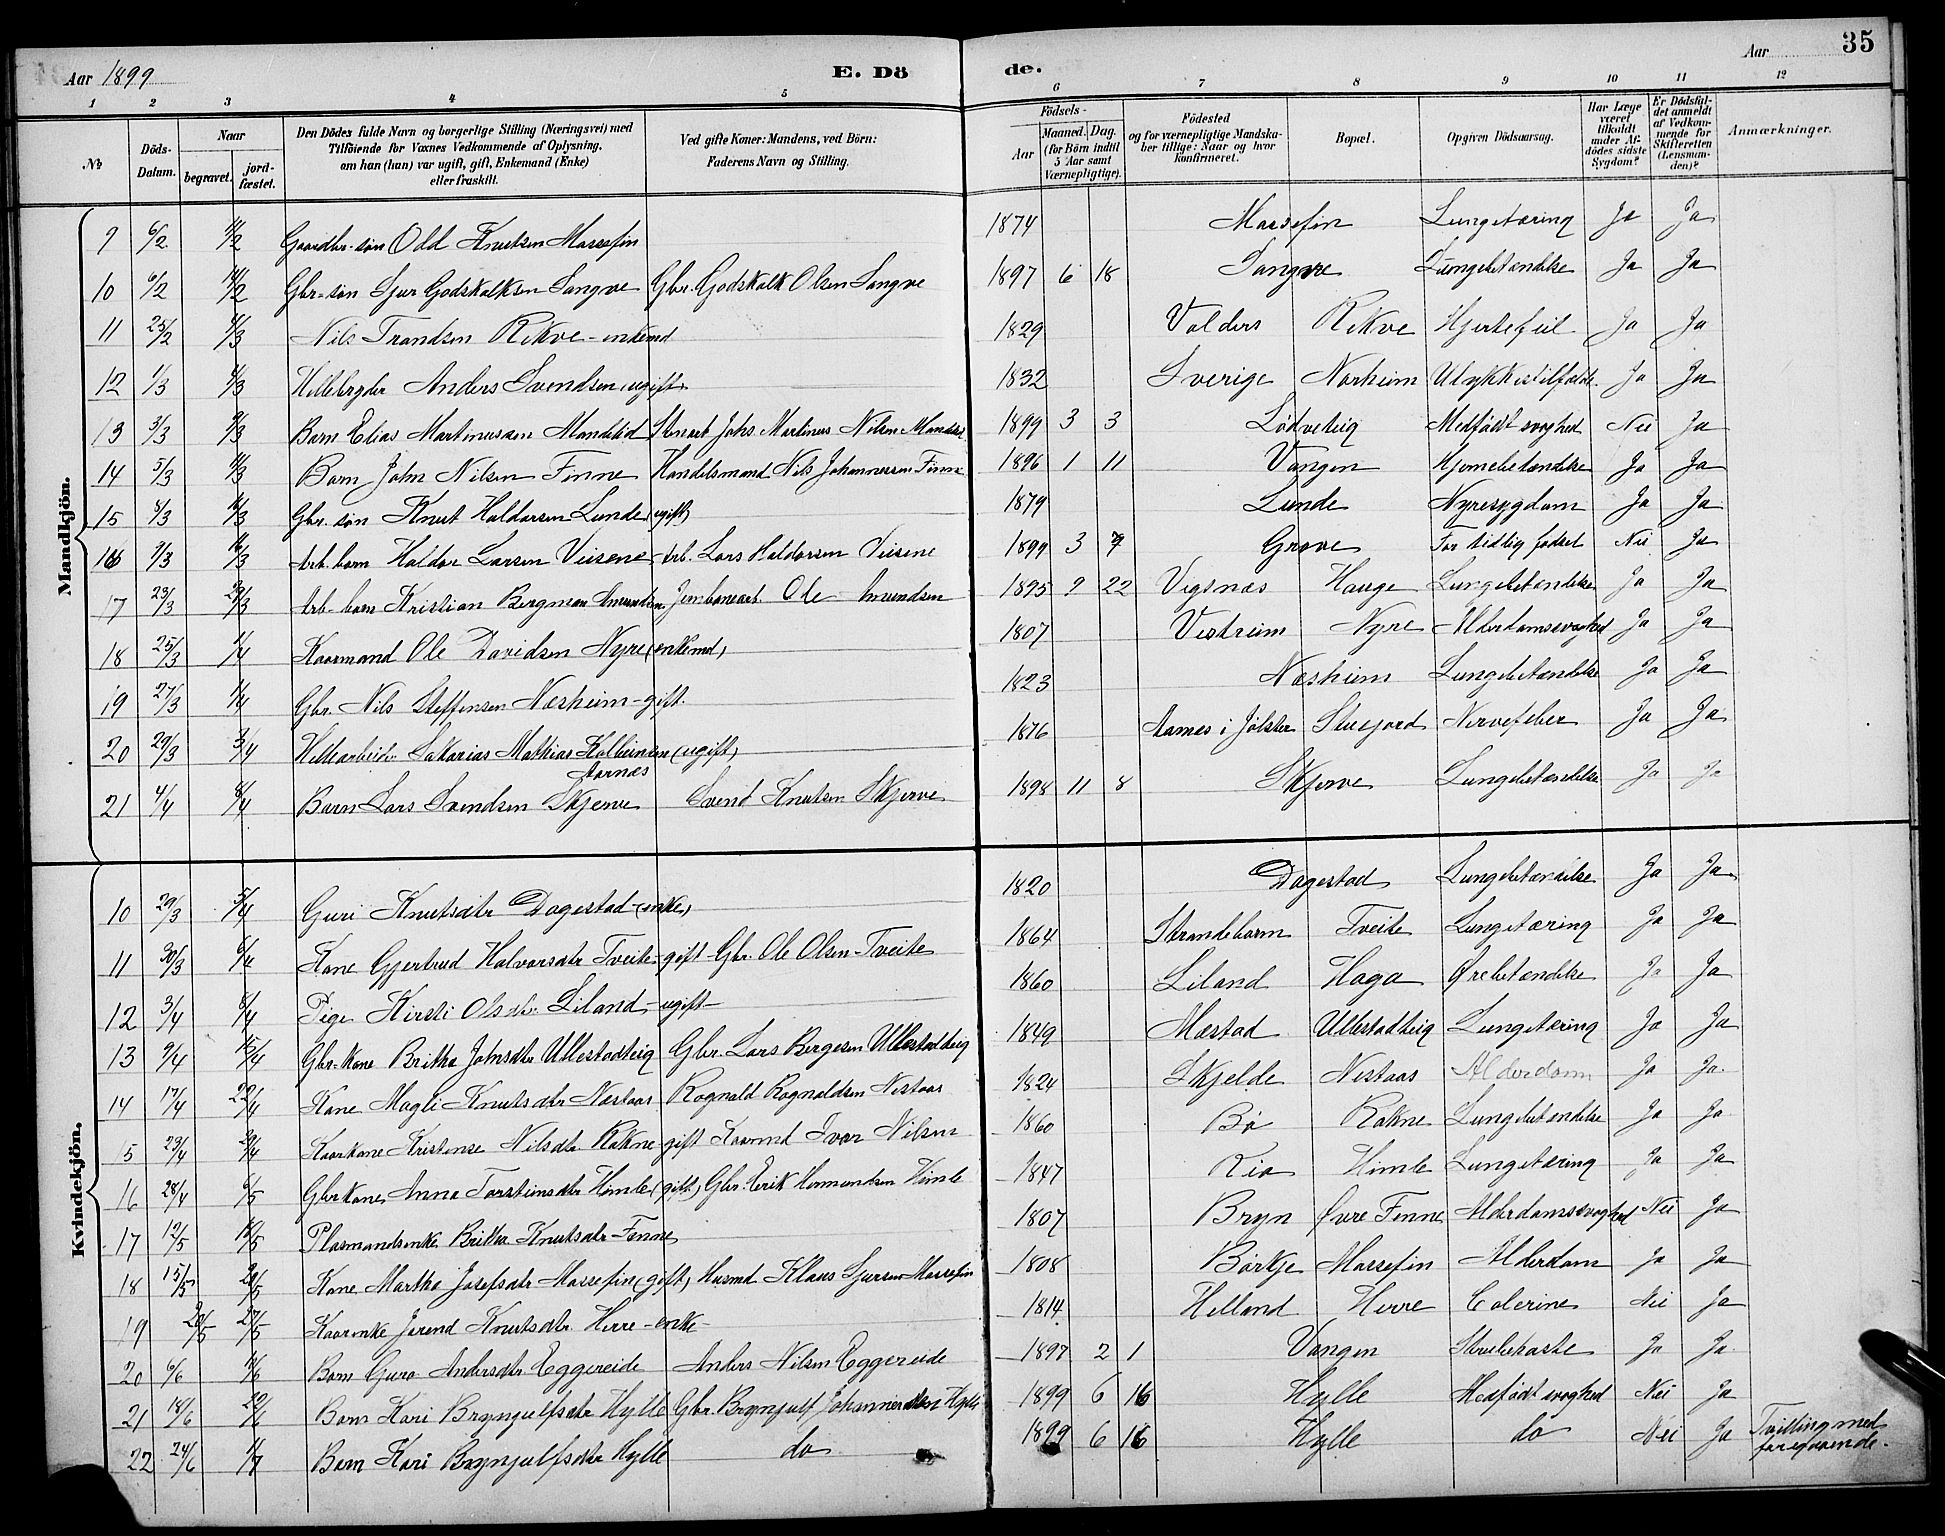 Aar 1899 E. Dö de. Aar 35
1 2 3 4 5 6 7 8 9 10 11 12
№ Döds-Datum. Naar begravet. jord-fæstet. Den Dödes fulde Navn og borgerlige Stilling (Næringsvei) med Tilföiende for Voxnes Vedkommende af Oplysning, om han (hun) var ugift, gift, Enkemand (Enke) eller fraskilt. Ved gifte Koner: Mandens, ved Börn: Faderens Navn og Stilling. Födsels- Aar Maaned. Dag. (for Börn indtil 5 Aar samt Værnepligtige). Födested og for værnepligtige Mandskaber tillige: Naar og hvor konfirmeret. Bopæl. Opgiven Dödsaarsag. Har Læge været tilkaldt under Afdödes sidste Sygdom? Er Dödsfaldet anmeldt af Vedkommende for Skifteretten (Lensmanden)? Anmærkninger.
Mandkjön.
9 6/2 Gaardbr. søn Odd Knutsen Massefin 1874 Massefin Lungetæring Ja Ja
10 6/2 14/2 Gbr-søn Sjur Godskalksen Sangve Gbr. Godskalk Olsen Sangve 1897 6 18 Sangve Lungebetændelse Ja Ja
11 25/2 4/3 Nils Trondsen Rekve - enkemd 1829 Valders Rekve Hjertefeil Ja Ja
12 1/3 4/3 Anders Svendsen, ugift. 1832 Sverige Norheim Ulykkestilfælde Ja Ja
13 3/3 9/3 Barn Elias Martinussen Mandelid Johs Martinus Nilsen 1899 3 3 Lødveteig Medfødt svaghed Nei Ja
14 5/3 11/3 Barn John Nilsen Finne Handelsmand Nils Johannessen Finne 1896 1 11 Vangen Hjernebetændelse Ja Ja
15 8/3 Gbr. søn Knut Haldorsen Lunde (ugift) 1879 Lunde Nyresygdom Ja Ja
16 9/3 Arb. barn Haldor Larsen Arb. Lars Haldorsen 1899 3 7 Grove For tidlig fødsel Nei Ja
17 23/3 29/3 Arb. barn Kristian Bergman Amundsen Jernbanearb. Ole Amundsen 1895 9 22 Vigsnæs Hauge Lungebetændelse Ja Ja
18 25/3 1/4 Kaarmand Ole Davidsen Nyre (enkemd) 1807 Vestreim Nyre Alderdomssvaghed Ja Ja
19 27/3 1/4 Gbr. Nils Steffensen Næsheim - gift. 1823 Næsheim Lungebetændelse Ja Ja
20 29/3 3/4 Sakarias Mathias Kolbeinsen (ugift) Aarnæs 1876 Aarnes i Jølster Nervefeber Ja Ja
21 4/4 8/4 Barn Lars Svendsen Skjerve Svend Knutsen Skjerve 1898 11 8 Skjerve Lungebetændelse Ja Ja
Kvindekjön.
10 29/3 5/4 Guri Knutsdtr Dagestad (enke) 1820 Dagestad Lungebetændelse Ja Ja
11 30/3 6/4 Kone Gjertrud Halvorsdtr Tveite - gift Gbr. Ole Olsen Tveite 1864 Strandebarm Tveite Lungetæring Ja Ja
12 3/4 8/4 Pige Kirsti Olsdtr. Liland - ugift - 1860 Liland Haga Ørebetændelse Ja Ja
13 9/4 15/4 Gbr-kone Britha Johnsdtr Ullestadteig Gbr. Lars Bergesen Ullestadteig 1849 Mæstad Ullestadteig Lungetæring Ja Ja
14 17/4 22/4 Kone Magli Knutsdtr Nestaas Ragnald Ragnaldsen Nestaas 1824 Skjelde Nestaas Alderdom Ja Ja
5 23/4 29/4 Kaarkone Kristense Nilsdtr. Rokne - gift Kaarmd Ivar Nilsen 1860 Bø Rokne Lungebetændelse Ja Ja
16 28/4 6/5 Gbrkone Anna Torsteinsdtr Himle (gift) Gbr. Erik Hermundsen Himle 1847 Kio Himle Lungetæring Ja Ja
17 12/5 18/5 Plasmandsenke Britha Knutsdtr Finne 1807 Bryn Øvre Finne Alderdomssvaghed Nei Ja
18 15/5 Kone Martha Josefsdtr Massefin (gift) Husmd Klaus Sjursen Massefin 1808 Børkje Massefin Alderdom Ja Ja
19 20/5 27/5 Kaarenke Jorend Knutsdtr. Herre - enke - 1814 Helland Herre Colerine Nei Ja
20 6/6 Barn Guro Andersdtr Eggereide Anders Nilsen Eggereide 1897 2 1 Vangen Strubehoste Ja Ja
21 18/6 Barn Kari Brynjulfsdtr Hylle Gbr. Brynjulf Johannessen Hylle 1899 6 16 Hylle Medfødt svaghed Nei Ja
22 24/6 1/7 Barn Kari Brynjulfsdtr Hylle do 1899 6 16 Hylle do Nei Ja Tvilling med
foregaaende.